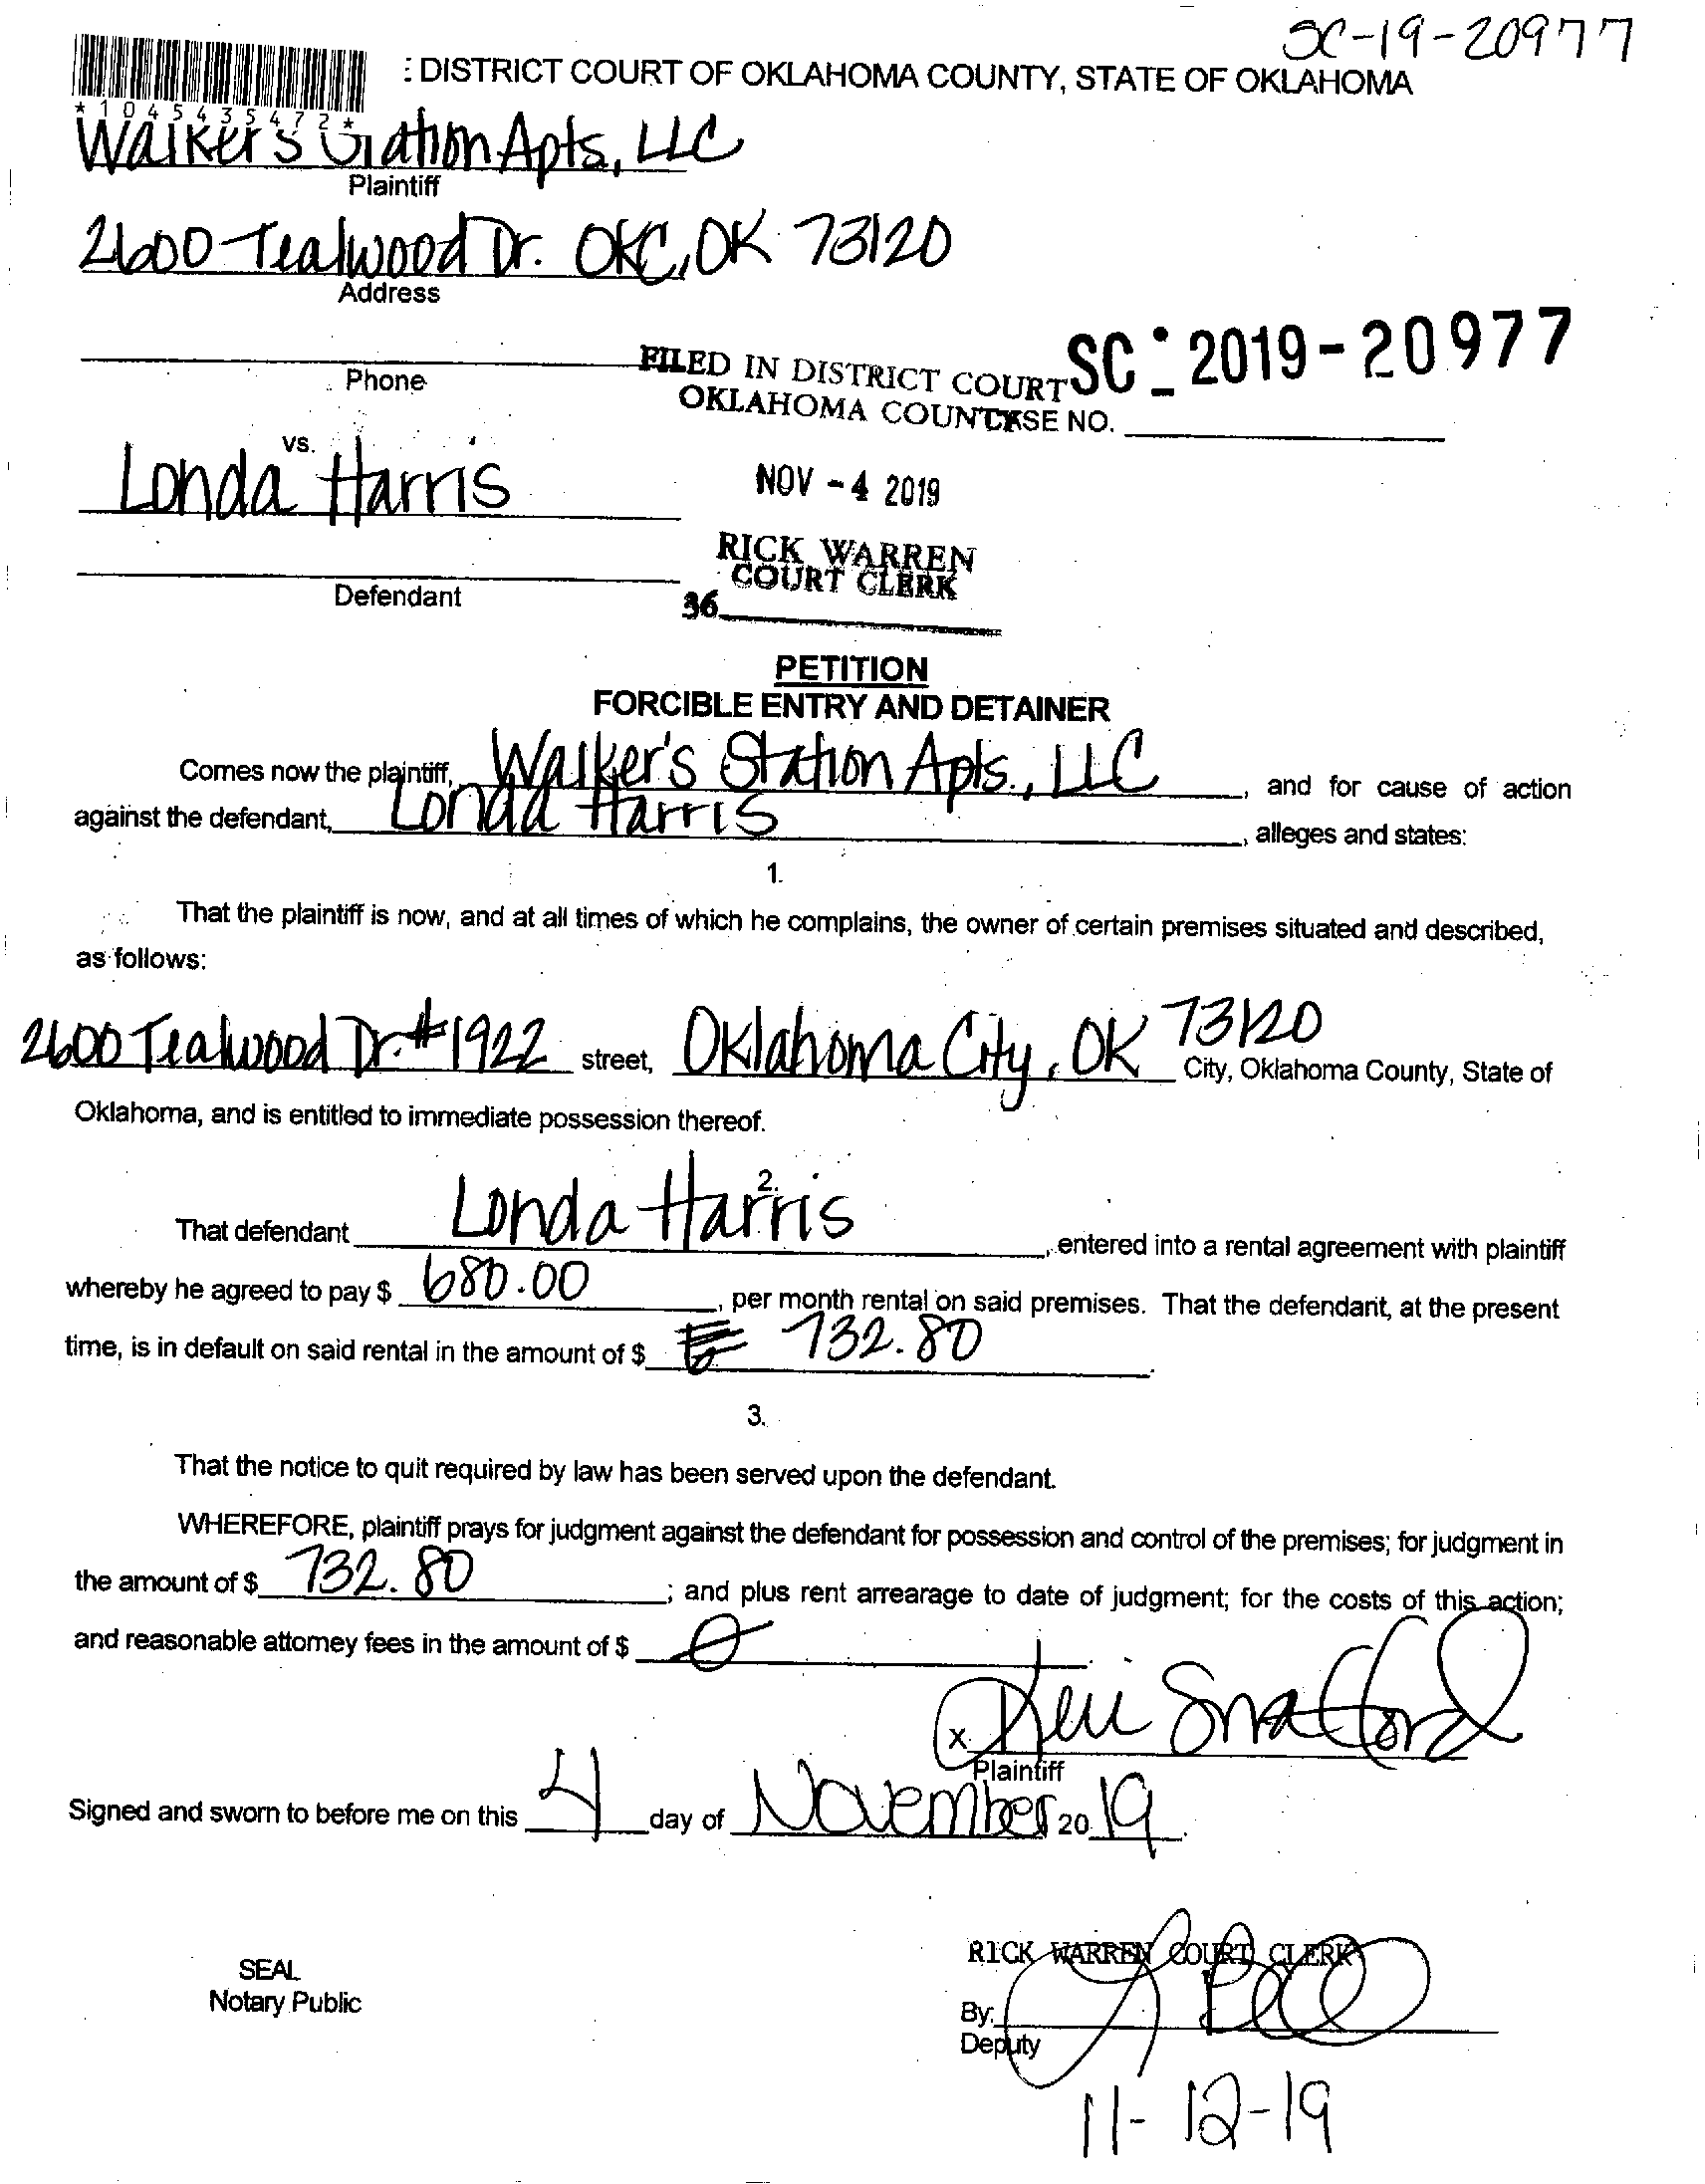 SC-19-20977
: DISTRICT COURT OF OKLAHOMA COUNTY, STATE OF OKLAHOMA
*1045435472*
Walker's Station Apts, LLC
Plaintiff
2600 Tealwood Dr. OKC, OK 73120
Address
Phone
FILED IN DISTRICT COURT
OKLAHOMA COUNTY
SC - 2019-20977
CASE NO.
vs.
Londa Harris
NOV -4 2019
RICK WARREN
COURT CLERK
Defendant
36
PETITION
FORCIBLE ENTRY AND DETAINER
Comes now the plaintiff, Walker's Station Apts., LLC, and for cause of action
against the defendant, Londa Harris, alleges and states:
1.
That the plaintiff is now, and at all times of which he complains, the owner of certain premises situated and described,
as follows:
2600 Tealwood Dr. #1922 street, Oklahoma City, OK 73120 City, Oklahoma County, State of
Oklahoma, and is entitled to immediate possession thereof.
2.
That defendant Londa Harris, entered into a rental agreement with plaintiff
whereby he agreed to pay $ 680.00, per month rental on said premises. That the defendant, at the present
time, is in default on said rental in the amount of $ 732.80.
3.
That the notice to quit required by law has been served upon the defendant.
WHEREFORE, plaintiff prays for judgment against the defendant for possession and control of the premises; for judgment in
the amount of $ 732.80; and plus rent arrearage to date of judgment; for the costs of this action;
and reasonable attorney fees in the amount of $ 0
x
Plaintiff
Signed and sworn to before me on this 4 day of November 20 19.
RICK WARREN COURT CLERK
SEAL
Notary Public
By:
Deputy
11-12-19